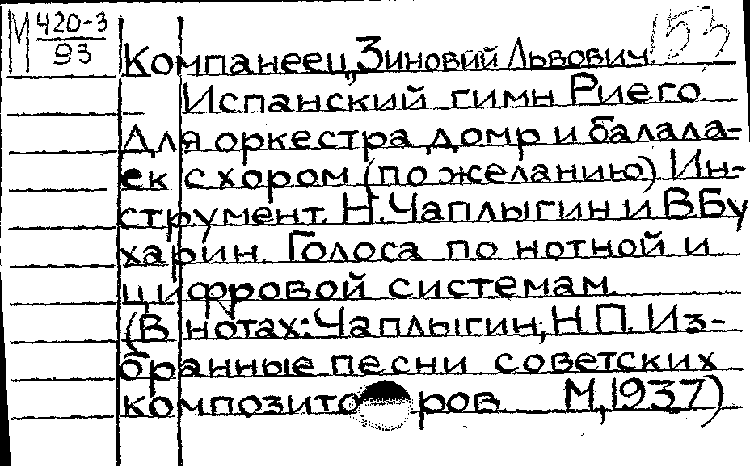 М 420-3
93
153
Компанеец, Зиновий Львович
Испанский гимн Риего
Для оркестра домр и балала-
ек с хором (по желанию) Ин-
струмент. Н. Чаплыгин и В. Бу
харин. Голоса по нотной и
цифровой системам.
(В нотах: Чаплыгин, Н. П. Из-
бранные песни советских
композиторов. М., 1937)